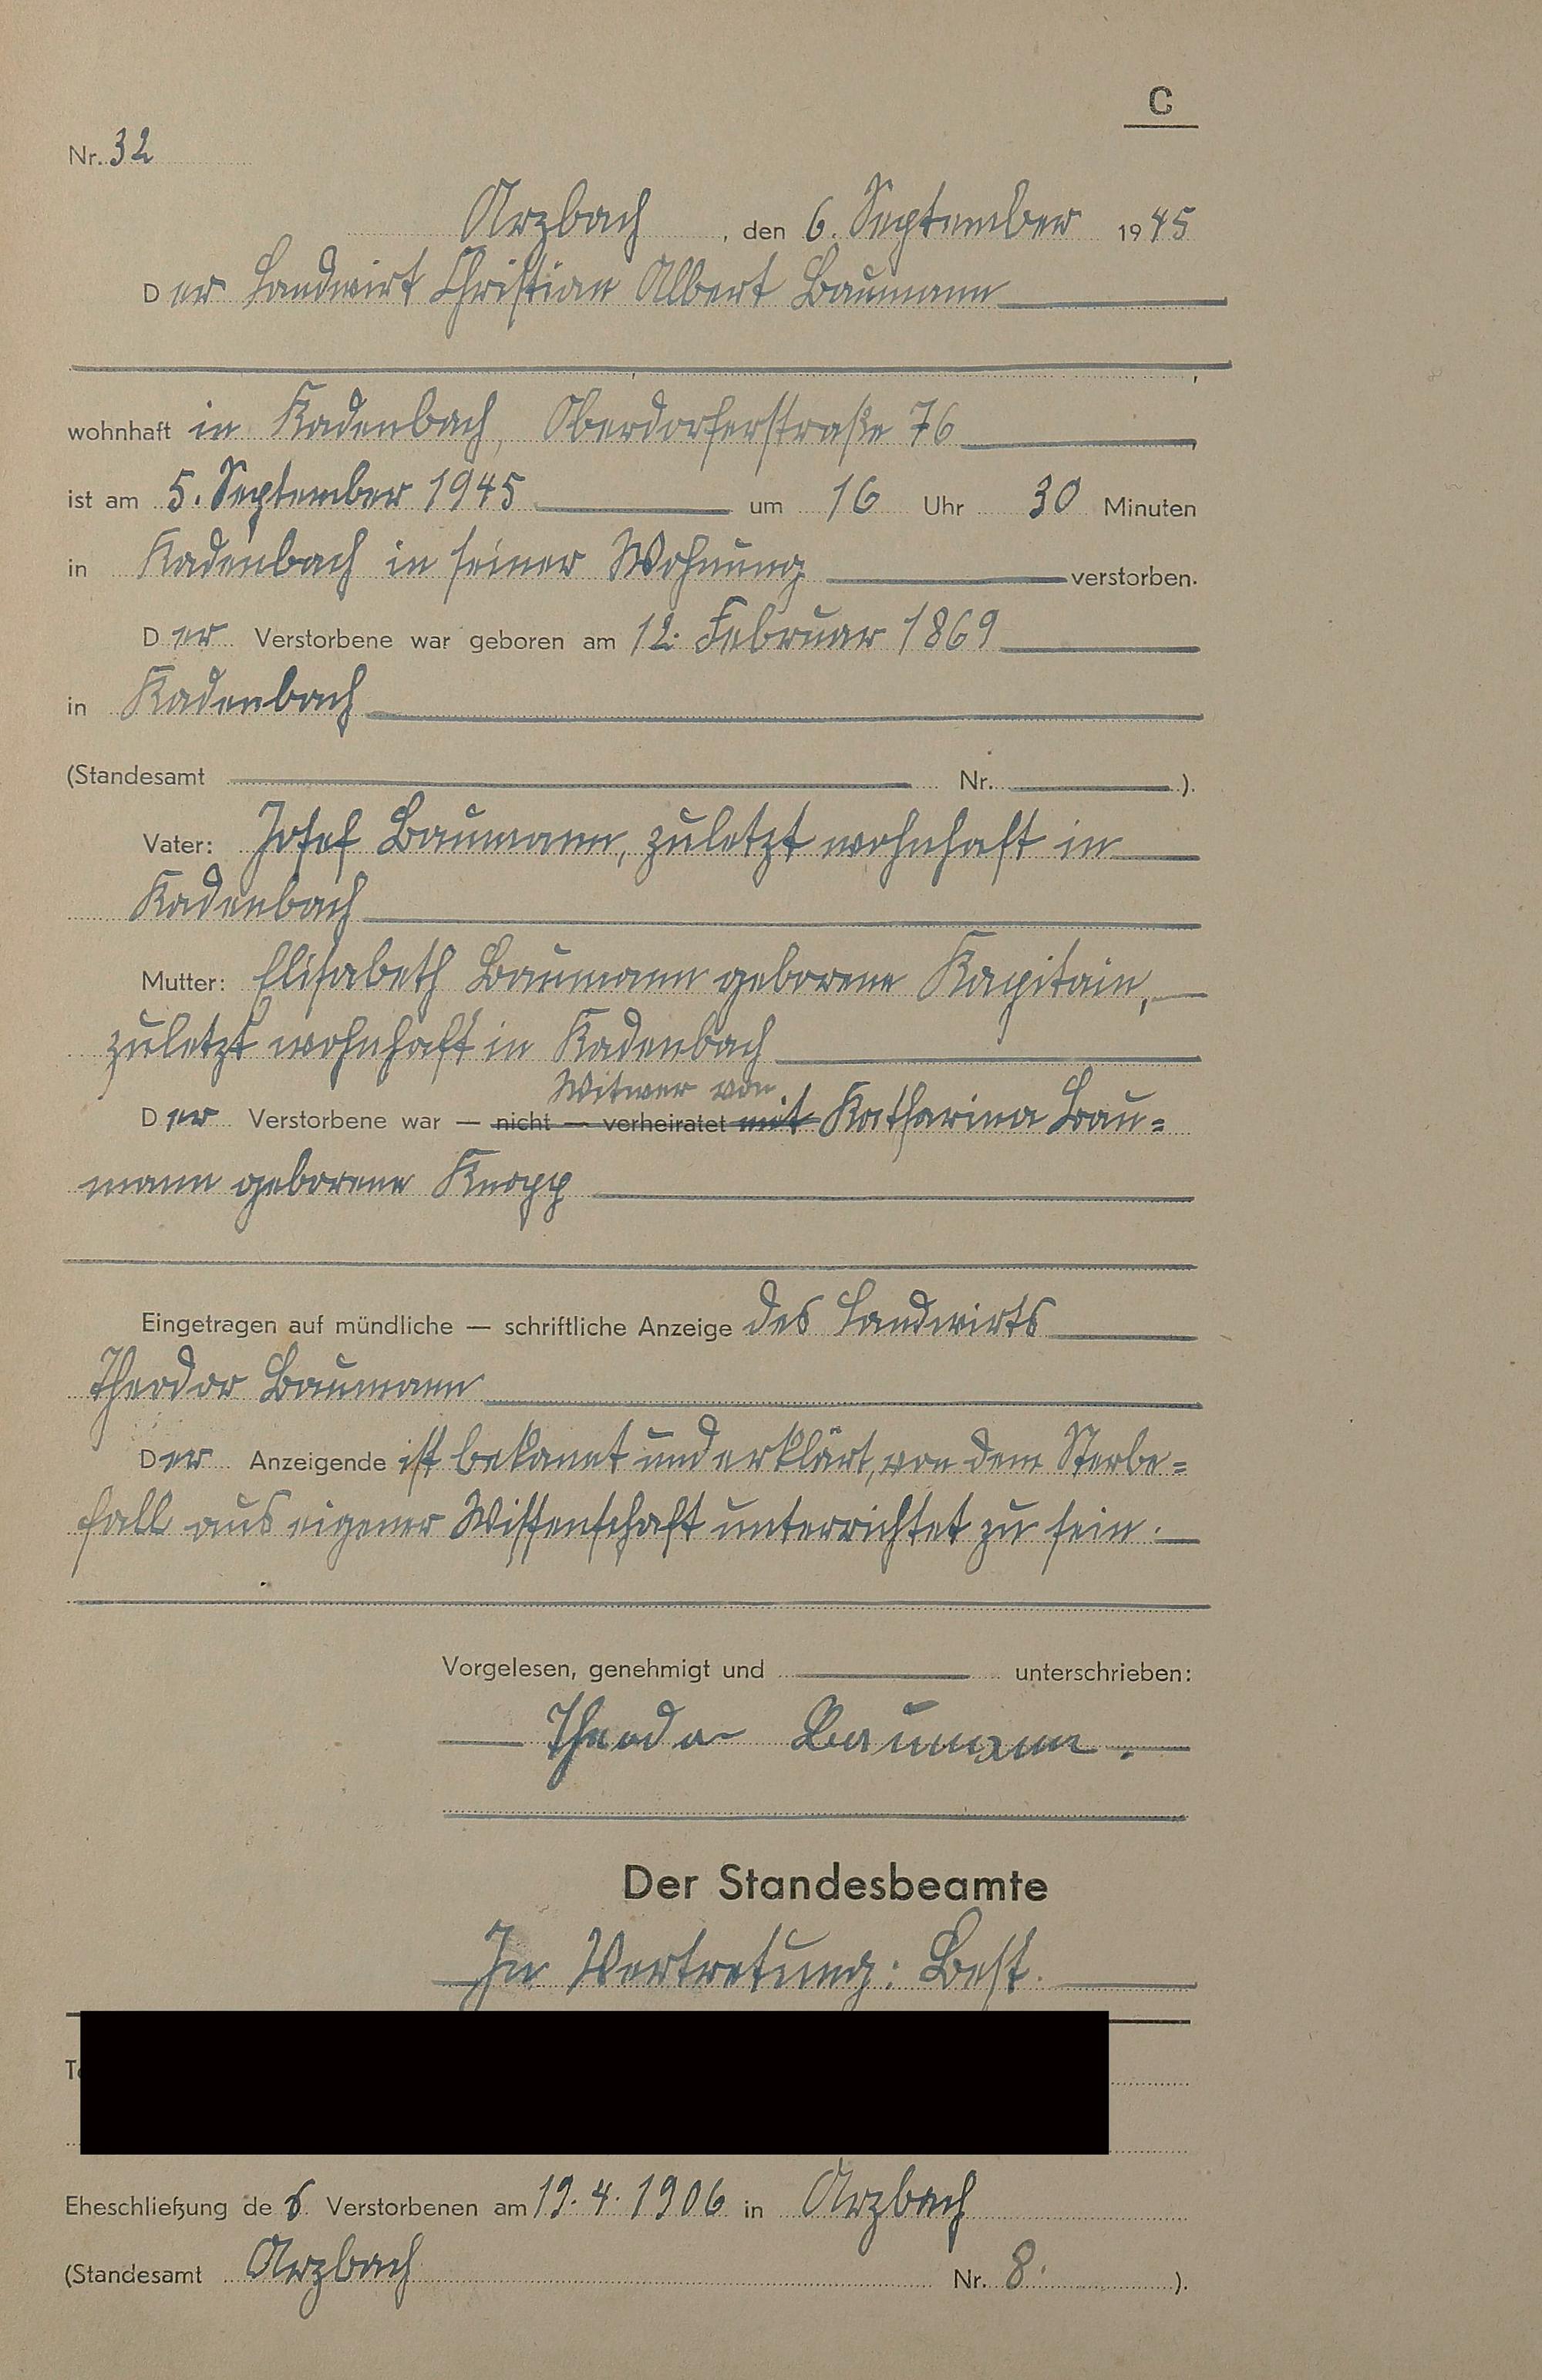 C
Nr. 32
Arzbach, den 6. September 1945
Der Landwirt Christian Albert Baumann
wohnhaft in Kadenbach, Oberdorferstraße 76
ist am 5. September 1945 um 16 Uhr 30 Minuten
in Kadenbach in seiner Wohnung verstorben.
Der Verstorbene war geboren am 12. Februar 1869
in Kadenbach
(Standesamt Nr. ).
Vater: Josef Baumann, zuletzt wohnhaft in
Kadenbach
Mutter: Elisabeth Baumann geborene Kapitain,
zuletzt wohnhaft in Kadenbach
Witwer von
Der Verstorbene war — nicht — verheiratet mit Katharina Bau=
mann geborene Knopp
Eingetragen auf mündliche — schriftliche Anzeige des Landwirts
Theodor Baumann
Der Anzeigende ist bekannt und erklärt, von dem Sterbe=
fall aus eigener Wissenschaft unterrichtet zu sein.
Vorgelesen, genehmigt und unterschrieben:
Theodor Baumann.
Der Standesbeamte
In Vertretung: Best.
Eheschließung des Verstorbenen am 19. 4. 1906 in Arzbach
(Standesamt Arzbach Nr. 8. ).